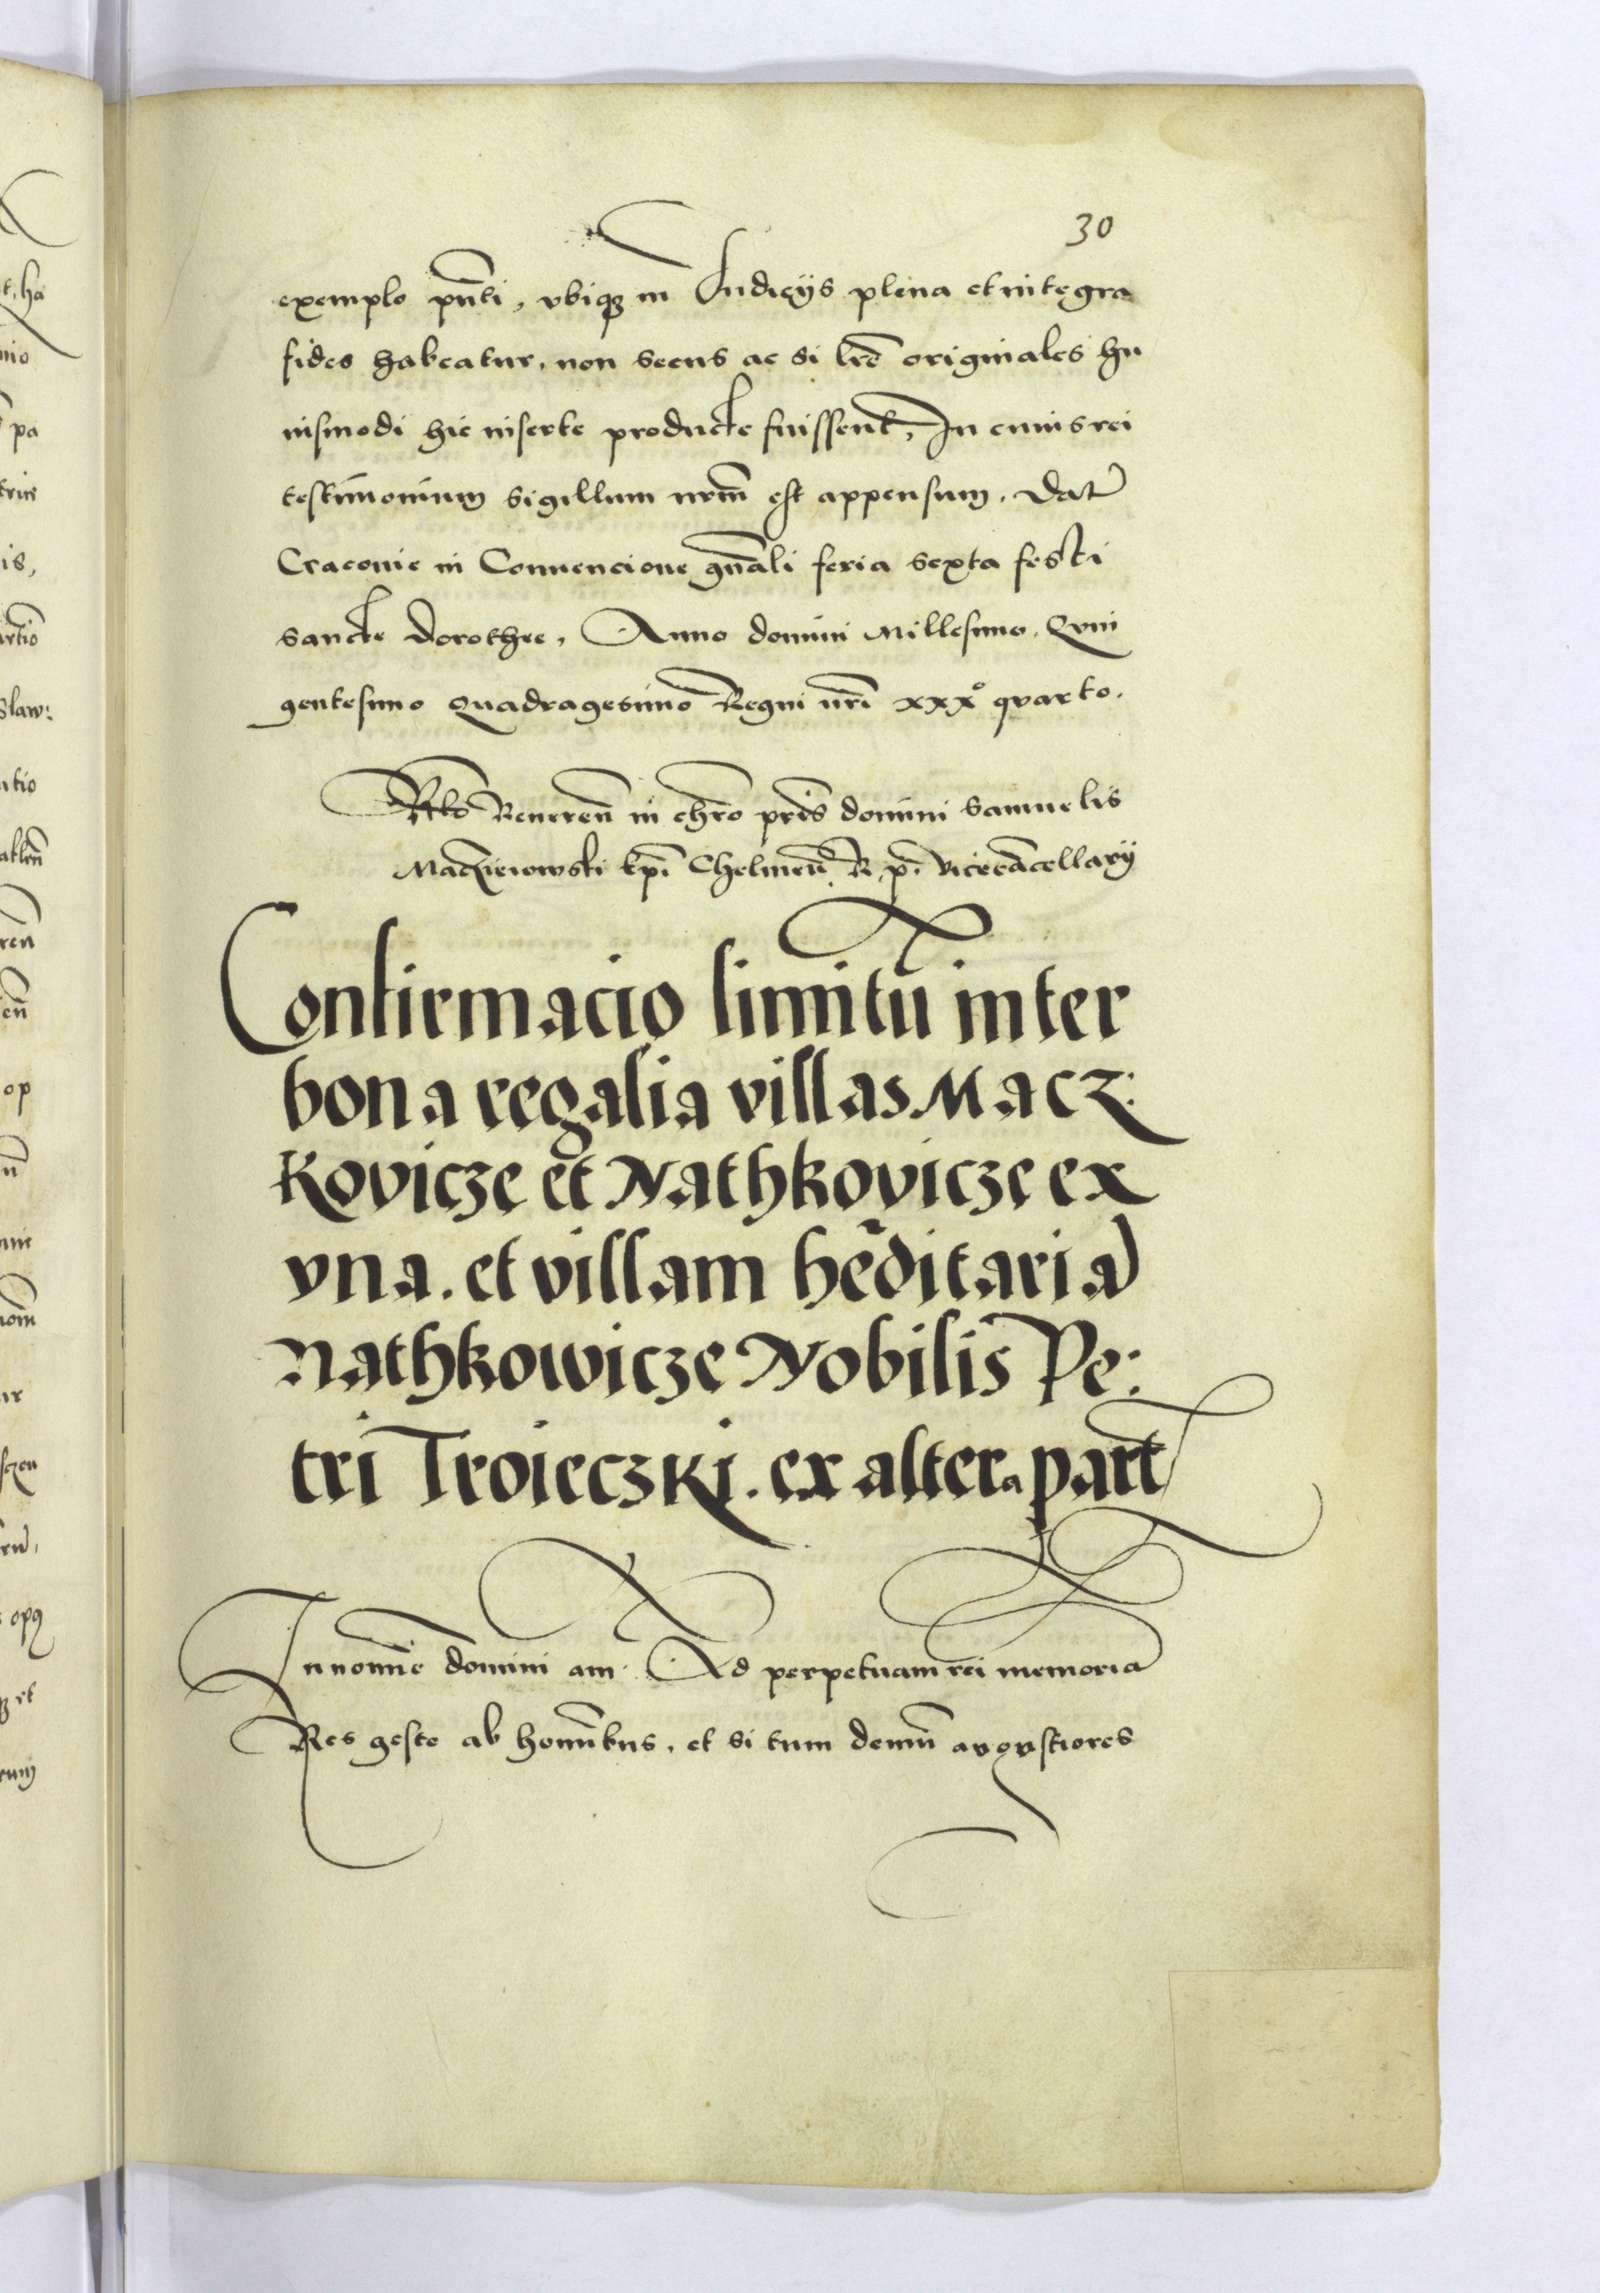 30
exemplo pñti, vbiqꝫ in Iudicÿs plena et integra
fides habeatur, non secus ac si lr̃e originales hu
iusmodi hic inserte producte fuissent, In cuius rei
testimonium sigillum nr̃m est appensum. Dat
Cracouie in Conuencione gñali feria sexta festi
sancte Dorothee, Anno domini Millesimo, Qvin
gentesimo Quadragesimo Regni nr̃i xxxº qvarto.
Rtło Reueren̄ in chr̃o pr̃is domini Samuelis
Macziejowski Ep̃i Chelmen̄ R. p. Vicecãcellarÿ
Confirmacio limitũ inter
bona regalia villas Macz:
kovicze et Nathkovicze ex
vna. et villam hẽditariã
Nathkowicze Nobilis Pe:
tri Troieczki. ex altera part
In nomĩe domini am. Ad perpetuam rei memoriã
Res geste ab homĩbus, et si tum demũ avgvstiores